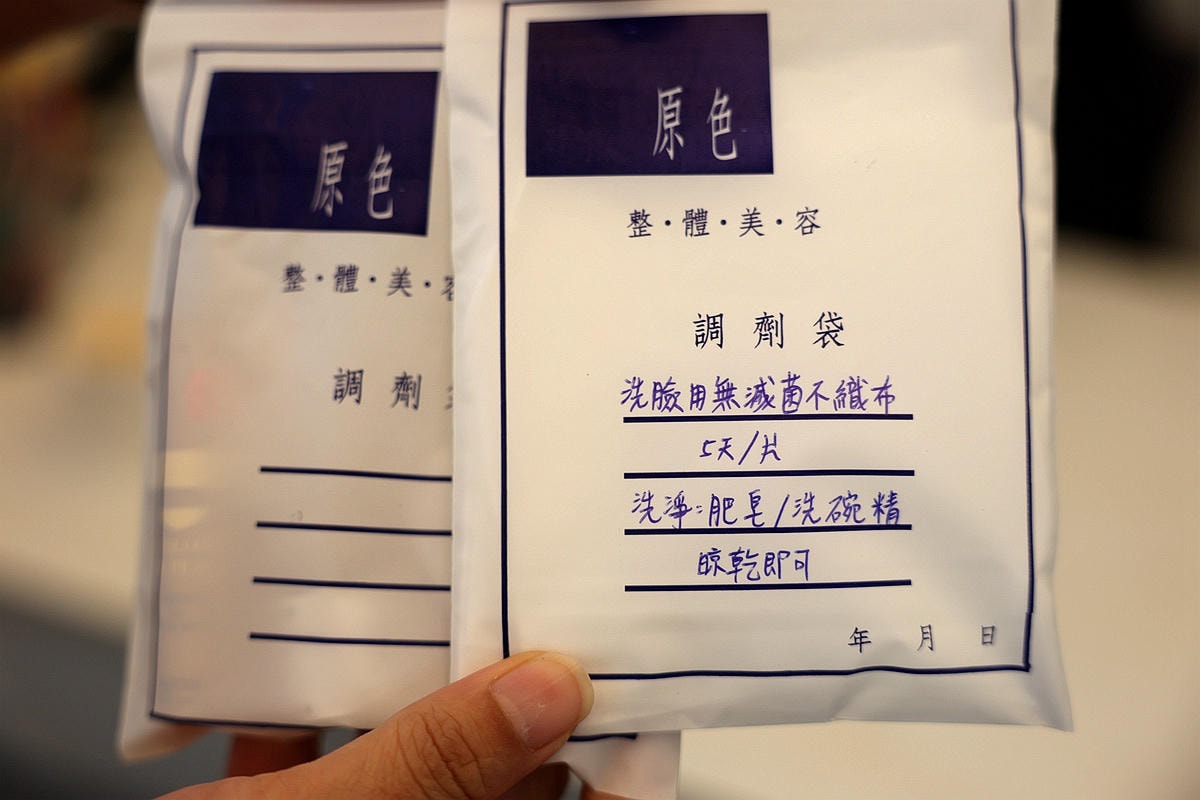 原色
整・體・美・容
調劑
原色
整・體・美・容
調劑袋
洗臉用無滅菌不織布
5天/片
洗淨:肥皂/洗碗精
晾乾即可
年 月 日